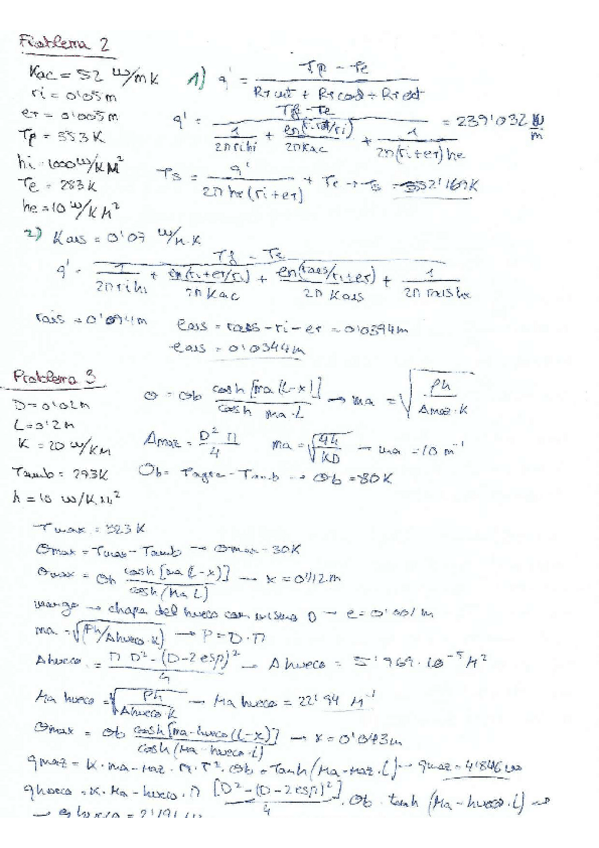 Problema 2
Kac = 52 W/mK
ri = 0'05m
er = 0'005m
Tp = 353K
hi = 1000 W/KM²
Te = 283K
he = 10 W/KM²
1) q' = (Tp - Te) / (Rtint + Rtcond + Rtext)
q' = (Tf - Te) / (1/(2πrihi) + en(ri+er/ri)/(2πKac) + 1/(2π(ri+er)he)) = 239'032 W/m
Ts = q' / (2πhe(ri+er)) + Te → Ts = 352'169K
2) Kais = 0'07 W/m·K
q' = (Tf - Te) / (1/(2πrihi) + en(ri+er/ri)/(2πKac) + en(rais/ri+er)/(2πKais) + 1/(2πraishe))
rais = 0'094m eais = rais - ri - er = 0'0394m
eais = 0'0344m
Problema 3
D = 0'02m
L = 0'2m
K = 20 W/KM
Tamb = 293K
h = 10 W/KM²
θ = θb cosh[ma(L-x)] / cosh ma·L → ma = √(Ph / Amaz·K)
Amaz = D²π/4 ma = √(4h/KD) → ma = 10 m⁻¹
θb = - Tamb → θb = 80K
Tmax = 323K
θmax = Tmax - Tamb → θmax = 30K
θmax = θb cosh[ma(L-x)] / cosh(Ma L) → x = 0'112m
mango → chapa del hueco con mismo D → e = 0'001m
ma = √(Ph/Ahueco·K) → P = D·π
Ahueco = π D² - (D-2esp)² / 4 → Ahueco = 5'969·10⁻⁵ M²
Ma hueco = √(Ph / Ahueco·K) → Ma hueco = 22'94 M⁻¹
θmax = θb cosh[ma-hueco(L-x)] / cosh(Ma-hueco·L) → x = 0'043m
qmaz = K·ma-maz·π·r²·θb = Tanh(Ma-maz·L) → qmaz = 4'846W
qhueco = K·Ma-hueco·π [D² - (D-2esp)²] / 4 · θb · tanh(Ma-hueco·L) →